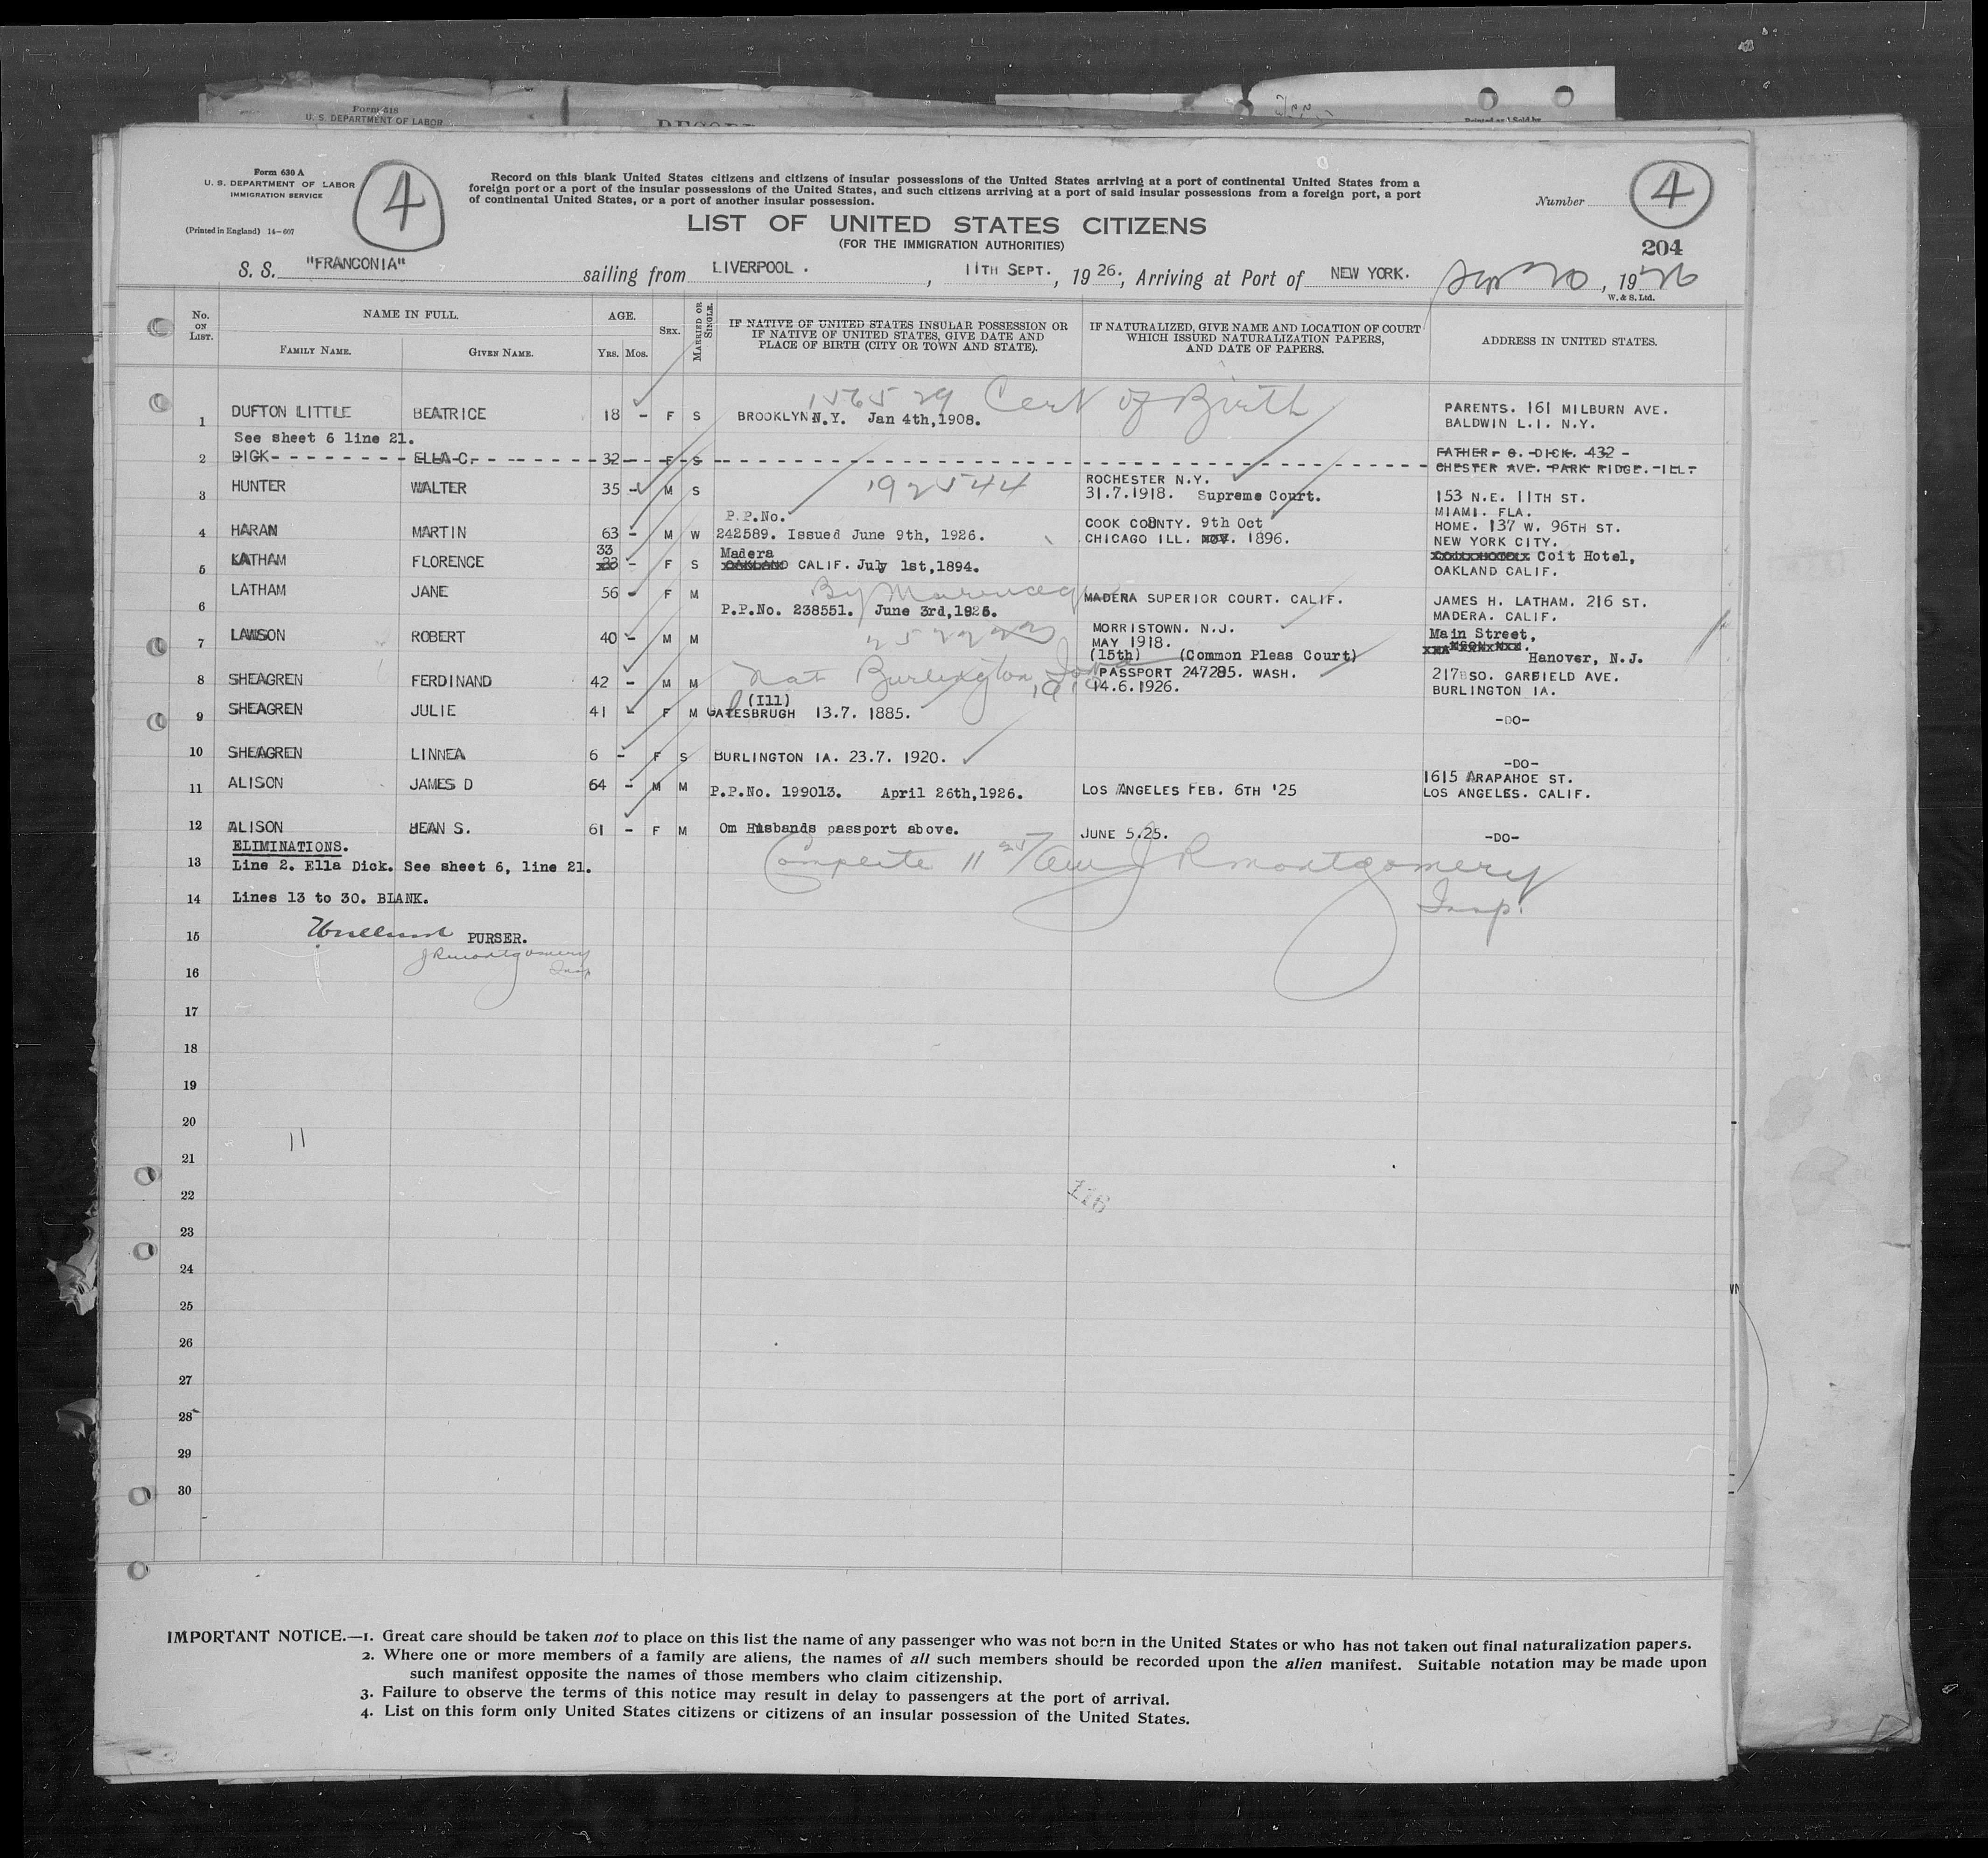 Form 618
U. S. DEPARTMENT OF LABOR
Form 630 A
U. S. DEPARTMENT OF LABOR
IMMIGRATION SERVICE
(Printed in England) 14-607
4
Record on this blank United States citizens and citizens of insular possessions of the United States arriving at a port of continental United States from a
foreign port or a port of the insular possessions of the United States, and such citizens arriving at a port of said insular possessions from a foreign port, a port
of continental United States, or a port of another insular possession.
LIST OF UNITED STATES CITIZENS
(FOR THE IMMIGRATION AUTHORITIES)
Number 4
204
S. S. "FRANCONIA" sailing from LIVERPOOL. , 11TH SEPT. , 1926. , Arriving at Port of NEW YORK. Sep 20 , 1926
W. & S. Ltd.
No. ON LIST.
NAME IN FULL.
FAMILY NAME. GIVEN NAME.
AGE.
YRS. MOS.
SEX.
MARRIED OR SINGLE.
IF NATIVE OF UNITED STATES INSULAR POSSESSION OR
IF NATIVE OF UNITED STATES, GIVE DATE AND
PLACE OF BIRTH (CITY OR TOWN AND STATE).
IF NATURALIZED, GIVE NAME AND LOCATION OF COURT
WHICH ISSUED NATURALIZATION PAPERS,
AND DATE OF PAPERS.
ADDRESS IN UNITED STATES.
156529 Cert of Birth
1 DUFTON LITTLE BEATRICE 18 - F S BROOKLYN N.Y. Jan 4th,1908. PARENTS. 161 MILBURN AVE.
BALDWIN L.I. N.Y.
See sheet 6 line 21.
2 DICK ELLA C. 32 - F S FATHER- O. DICK. 432 -
CHESTER AVE. PARK RIDGE. ILL-
3 HUNTER WALTER 35 - M S 192544 ROCHESTER N.Y.
31.7.1918. Supreme Court. 153 N.E. 11TH ST.
MIAMI. FLA.
P.P.No.
4 HARAN MARTIN 63 - M W 242589. Issued June 9th, 1926. COOK COUNTY. 9th Oct
CHICAGO ILL. NOV. 1896. HOME. 137 W. 96TH ST.
NEW YORK CITY.
33 Madera
5 LATHAM FLORENCE - F S OAKLAND CALIF. July 1st,1894. Coit Hotel,
OAKLAND CALIF.
6 LATHAM JANE 56 - F M P.P.No. 238551. June 3rd,1926. MADERA SUPERIOR COURT. CALIF. JAMES H. LATHAM. 216 ST.
MADERA. CALIF.
7 LAWSON ROBERT 40 - M M MORRISTOWN. N.J.
MAY 1918.
(15th) (Common Pleas Court) Main Street,
Hanover, N.J.
Nat Burlington Iowa
8 SHEAGREN FERDINAND 42 - M M PASSPORT 247285. WASH.
14.6.1926. 217 SO. GARFIELD AVE.
BURLINGTON IA.
(Ill)
9 SHEAGREN JULIE 41 - F M GALESBRUGH 13.7. 1885. -DO-
10 SHEAGREN LINNEA 6 - F S BURLINGTON IA. 23.7. 1920. -DO-
11 ALISON JAMES D 64 - M M P.P.No. 199013. April 26th,1926. LOS ANGELES FEB. 6TH '25 1615 ARAPAHOE ST.
LOS ANGELES. CALIF.
12 ALISON JEAN S. 61 - F M Om Husbands passport above. JUNE 5.25. -DO-
ELIMINATIONS.
13 Line 2. Ella Dick. See sheet 6, line 21.
Complete 11 J R Montgomery
Insp.
14 Lines 13 to 30. BLANK.
15 PURSER.
J R Montgomery
Insp
16
17
18
19
20
11
21
22
116
23
24
25
26
27
28
29
30
IMPORTANT NOTICE.—1. Great care should be taken not to place on this list the name of any passenger who was not born in the United States or who has not taken out final naturalization papers.
2. Where one or more members of a family are aliens, the names of all such members should be recorded upon the alien manifest. Suitable notation may be made upon
such manifest opposite the names of those members who claim citizenship.
3. Failure to observe the terms of this notice may result in delay to passengers at the port of arrival.
4. List on this form only United States citizens or citizens of an insular possession of the United States.